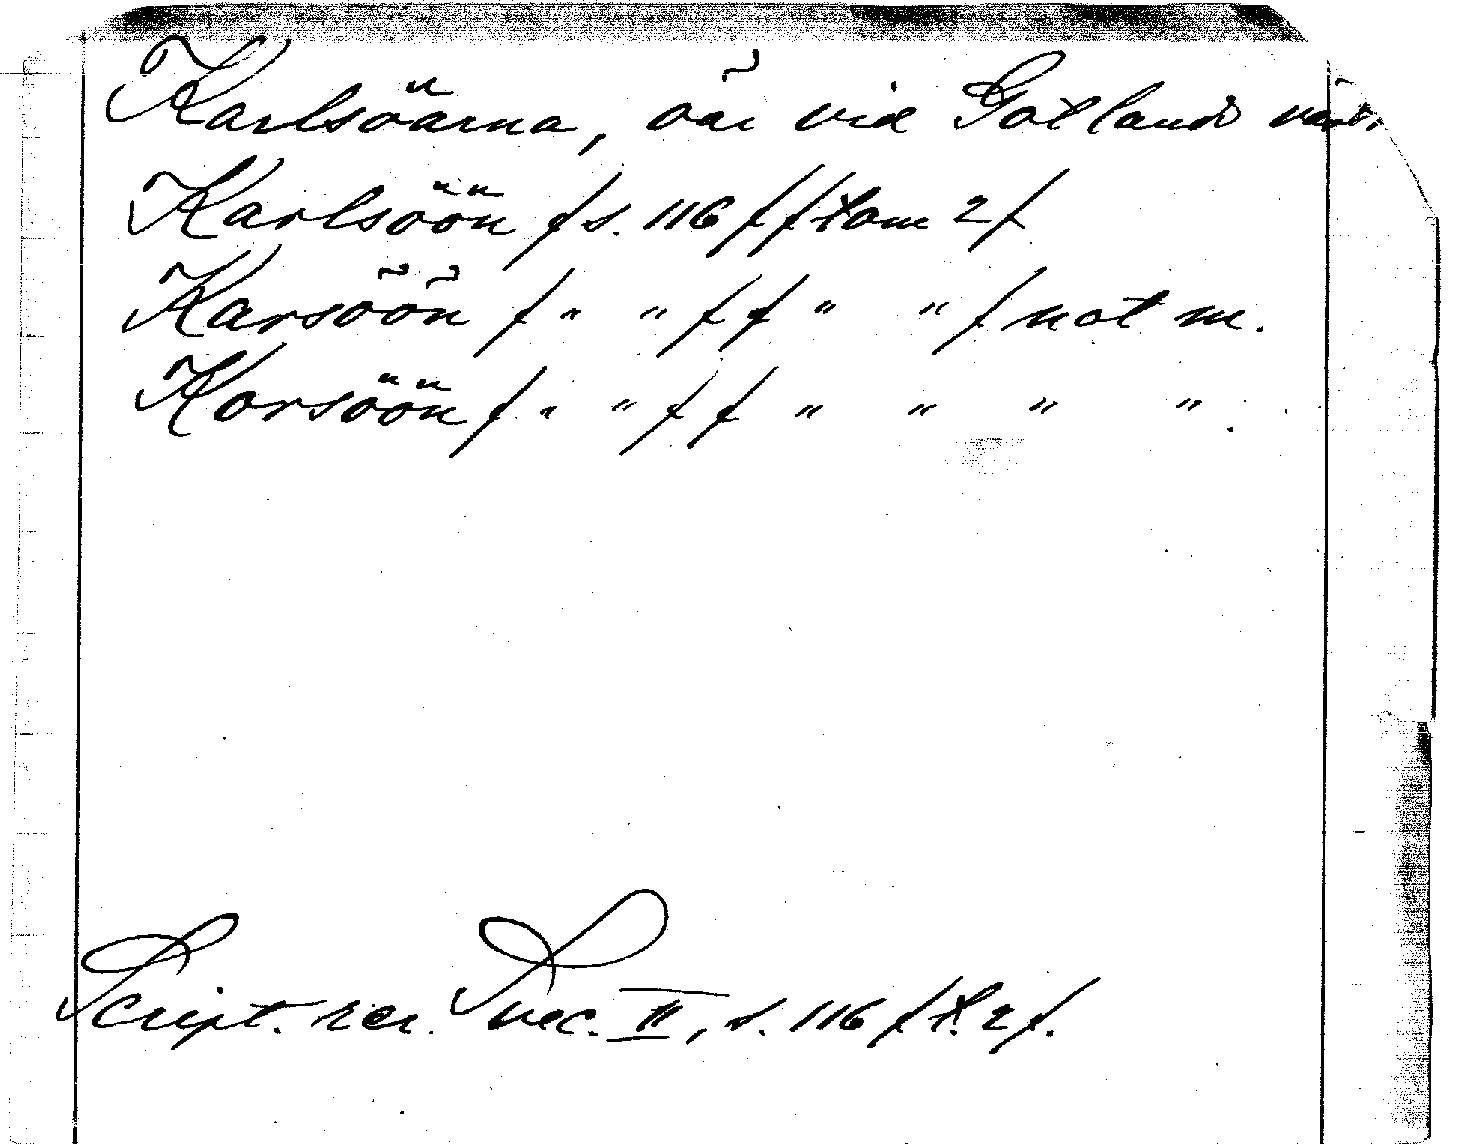 Karlsöarna, öar vid Gotlands väst.
Karlsöön /s. 116/ /tom 2/
Karsöön / " " / / " " / not m.
Korsöön / " " / / " " " "
Script. rer. Svec. II, s. 116 /t. 2/.